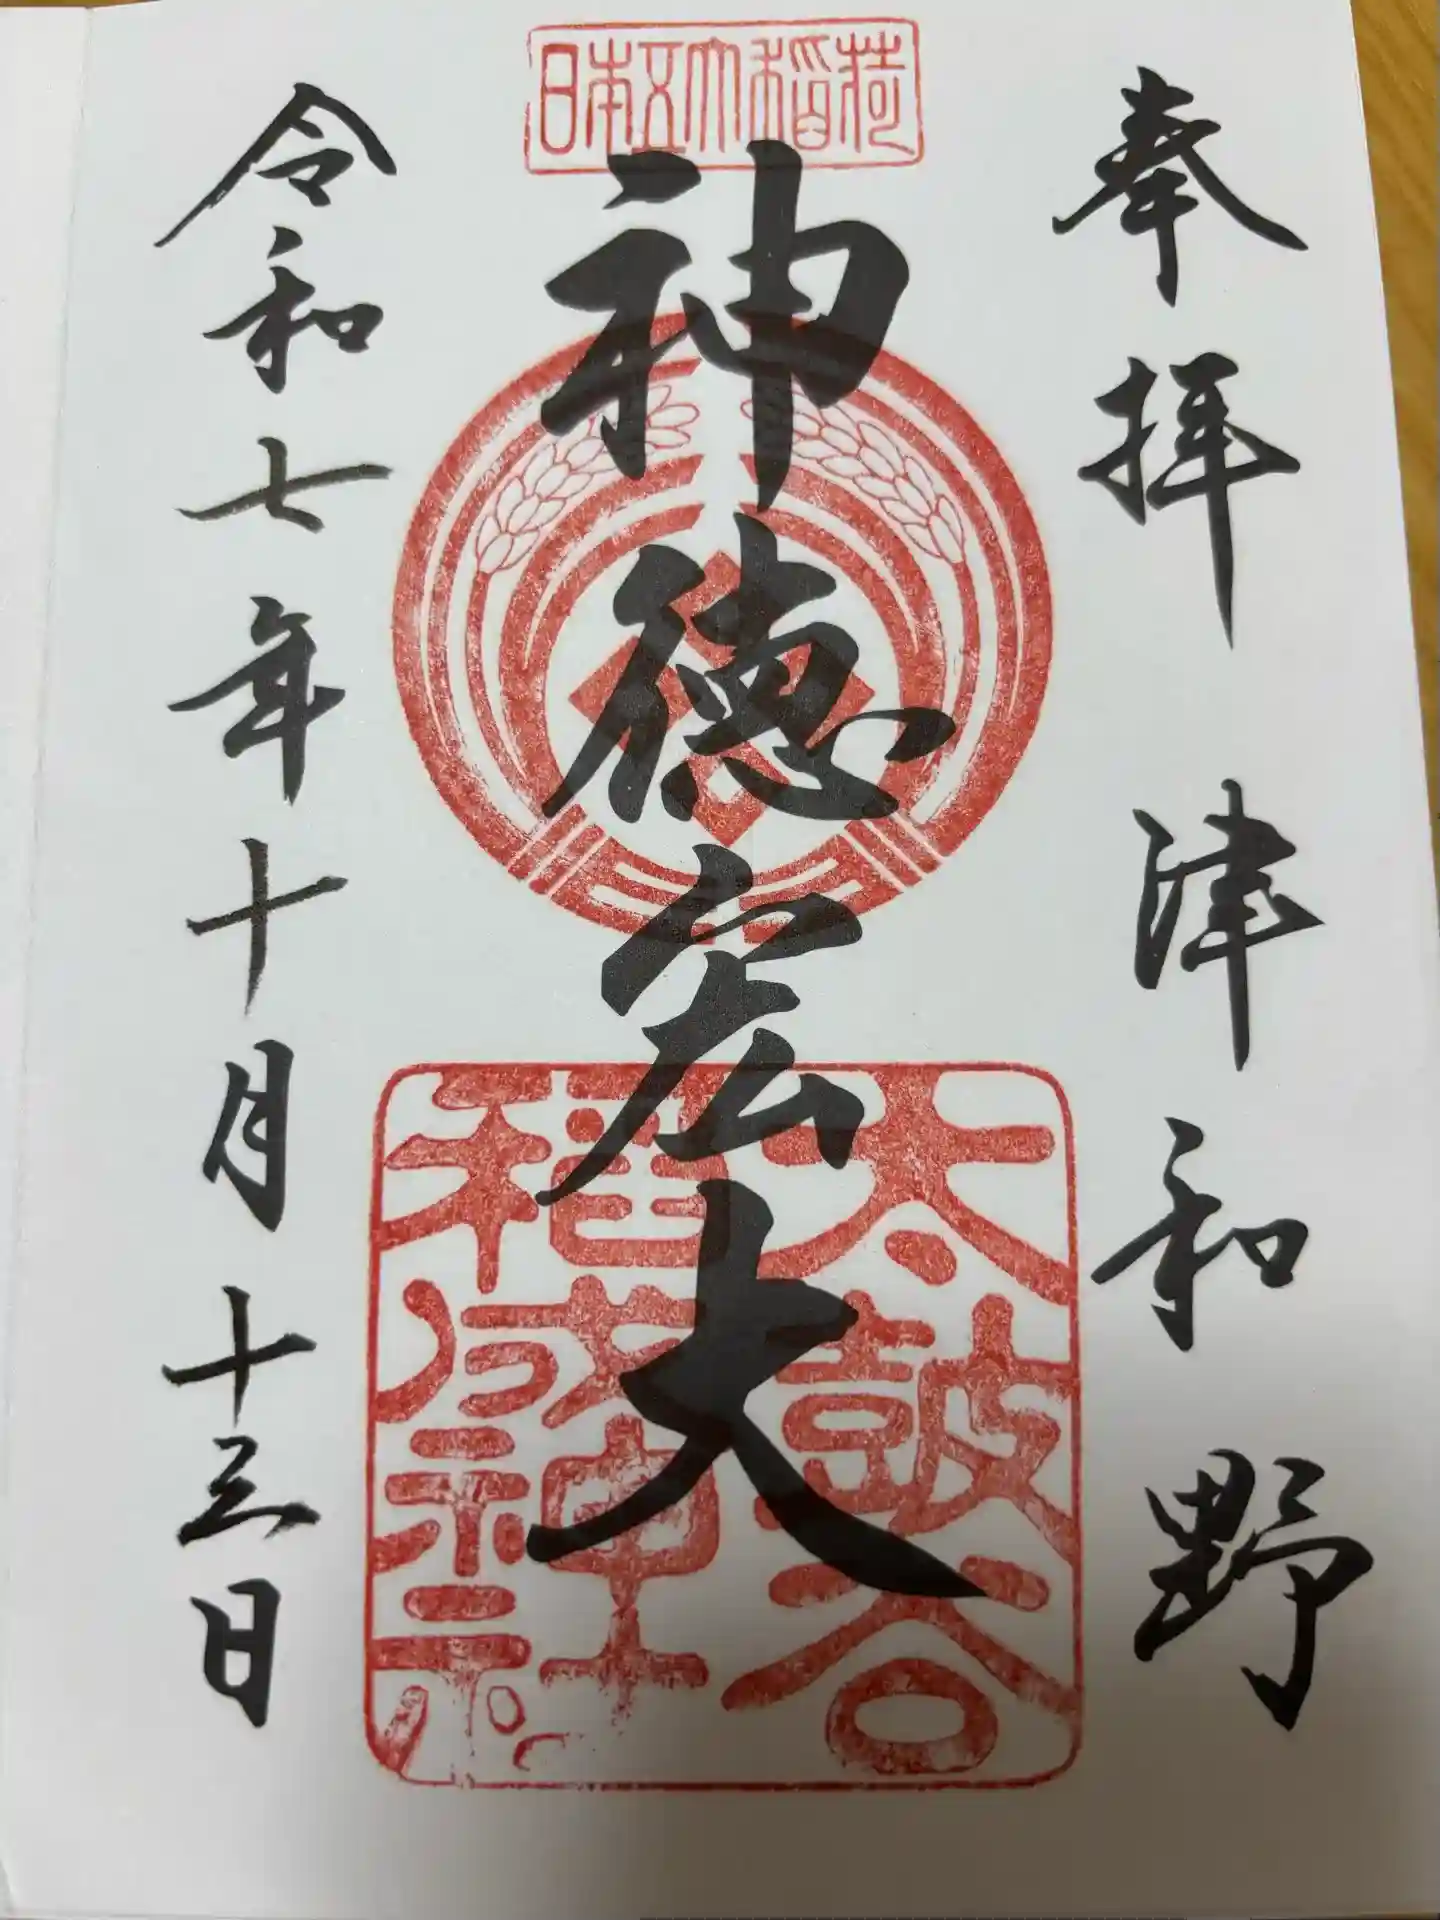 奉拝 津和野
日本五大稲荷
神徳宏大
太鼓谷
稲荷神社
令和七年十月十三日